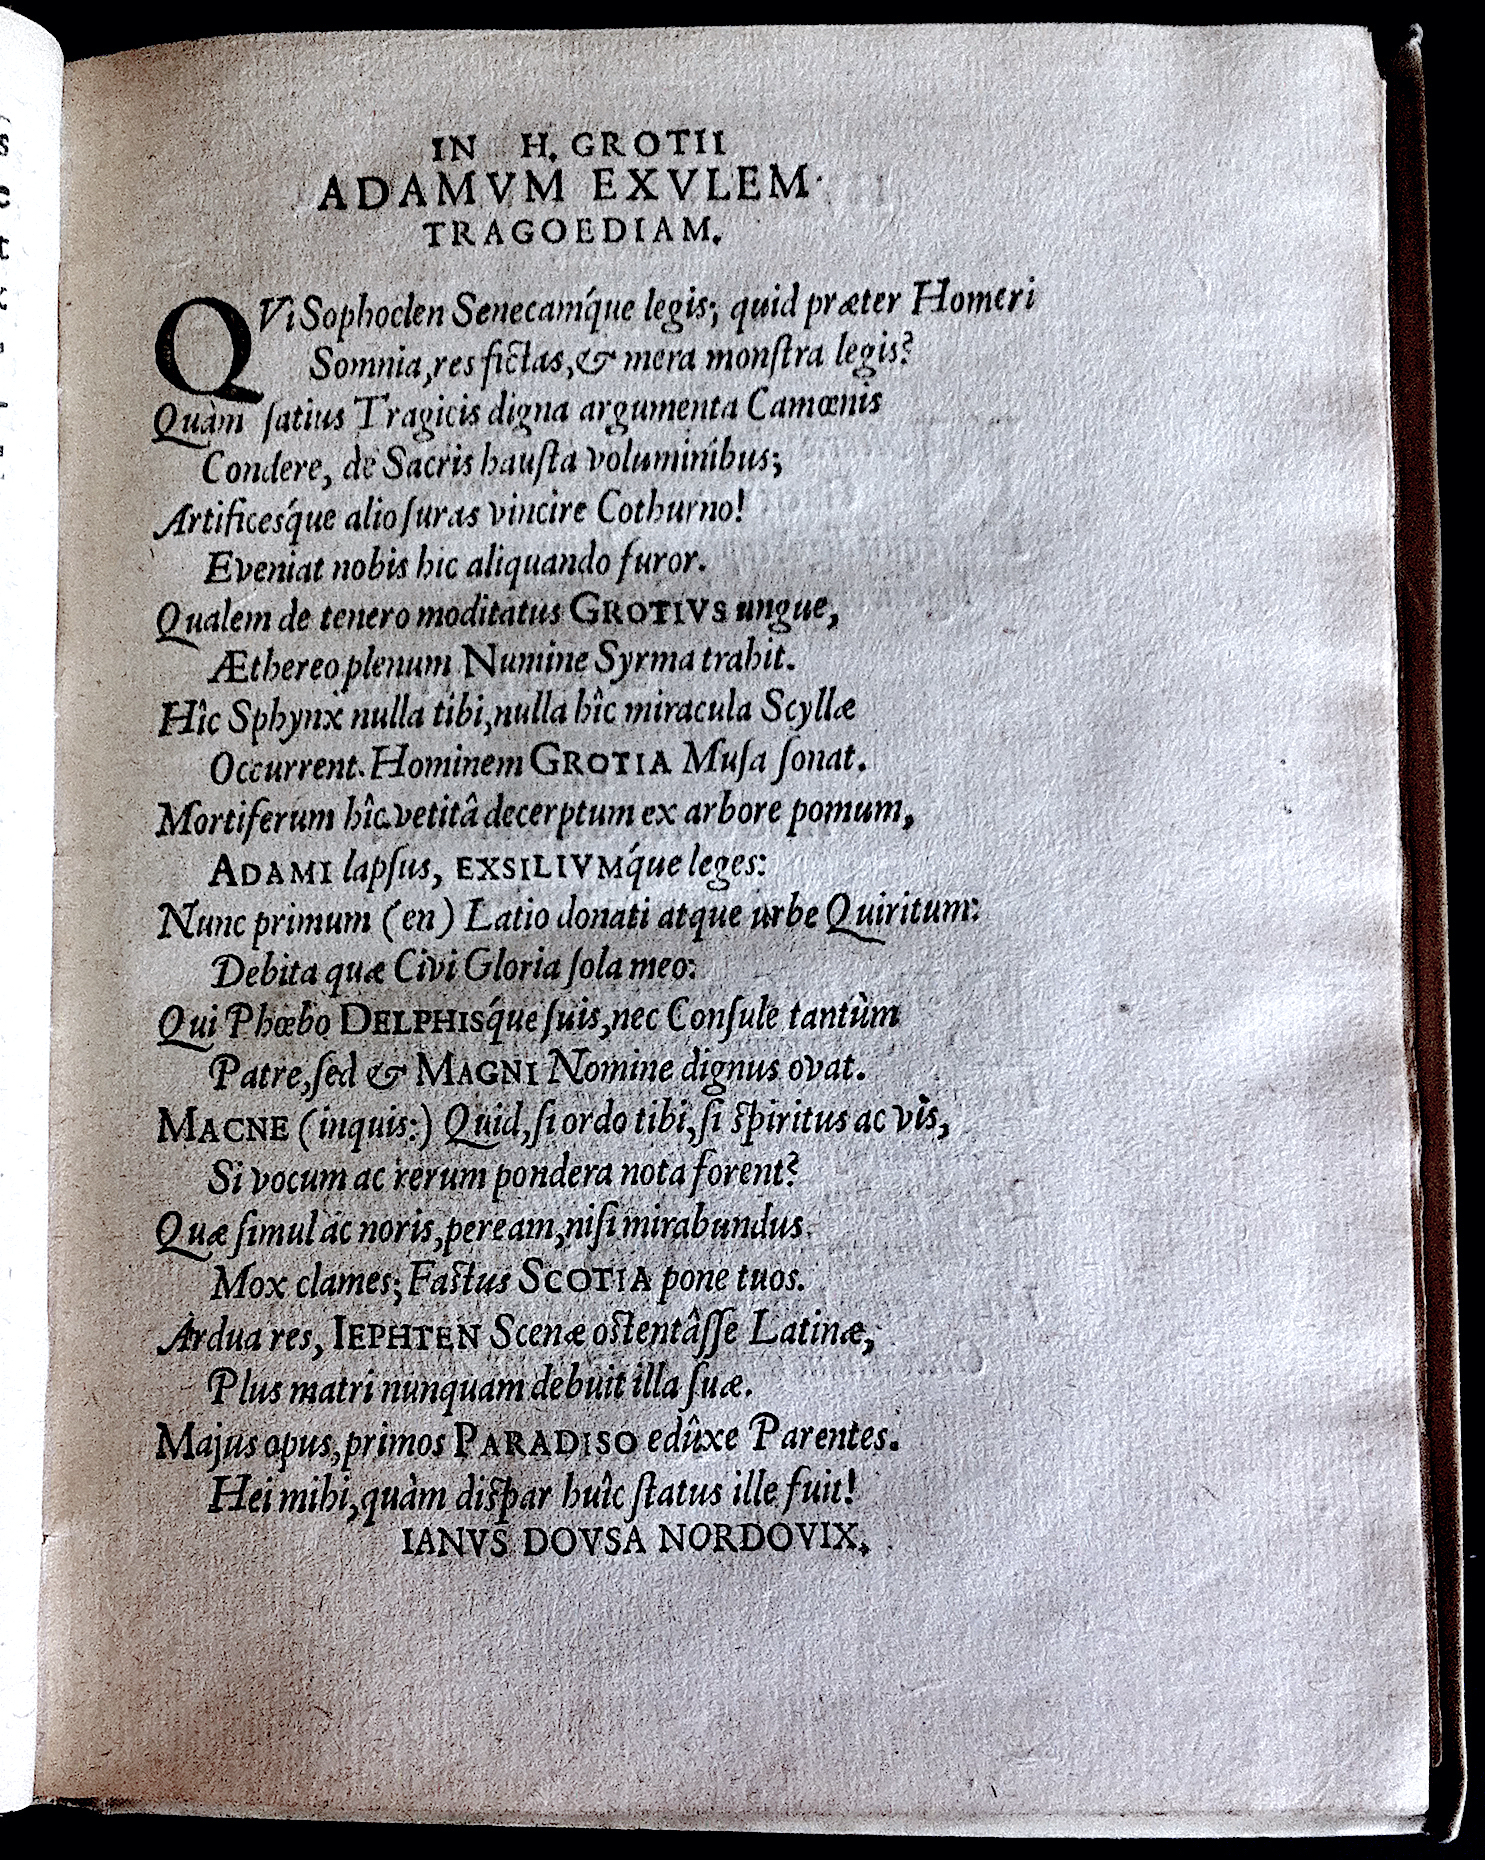 IN H. GROTII
ADAMVM EXVLEM
TRAGOEDIAM.
QVi Sophoclen Senecamq́ue legis; quid præter Homeri
Somnia, res fictas, & mera monſtra legis?
Quàm ſatius Tragicis digna argumenta Camœnis
Condere, de Sacris hauſta voluminibus;
Artificesq́ue alio ſuras vincire Cothurno!
Eveniat nobis hic aliquando furor.
Qualem de tenero moditatus GROTIVS ungue,
Æthereo plenum Numine Syrma trahit.
Hîc Sphynx nulla tibi, nulla hîc miracula Scyllæ
Occurrent. Hominem GROTIA Muſa ſonat.
Mortiferum hîc vetitâ decerptum ex arbore pomum,
ADAMI lapſus, EXSILIVMq́ue leges:
Nunc primum (en) Latio donati atque urbe Quiritum:
Debita quæ Civi Gloria ſola meo:
Qui Phœbo DELPHISq́ue ſuis, nec Conſule tantùm
Patre, ſed & MAGNI Nomine dignus ovat.
MACNE (inquis:) Quid, ſi ordo tibi, ſi ſpiritus ac vis,
Si vocum ac rerum pondera nota forent?
Quæ ſimul ac noris, peream, niſi mirabundus
Mox clames; Faſtus SCOTIA pone tuos.
Ardua res, IEPHTEN Scenæ oſtentâſſe Latinæ,
Plus matri nunquam debuit illa ſuæ.
Majus opus, primos PARADISO edûxe Parentes.
Hei mihi, quàm diſpar huîc ſtatus ille fuit!
IANVS DOVSA NORDOVIX.